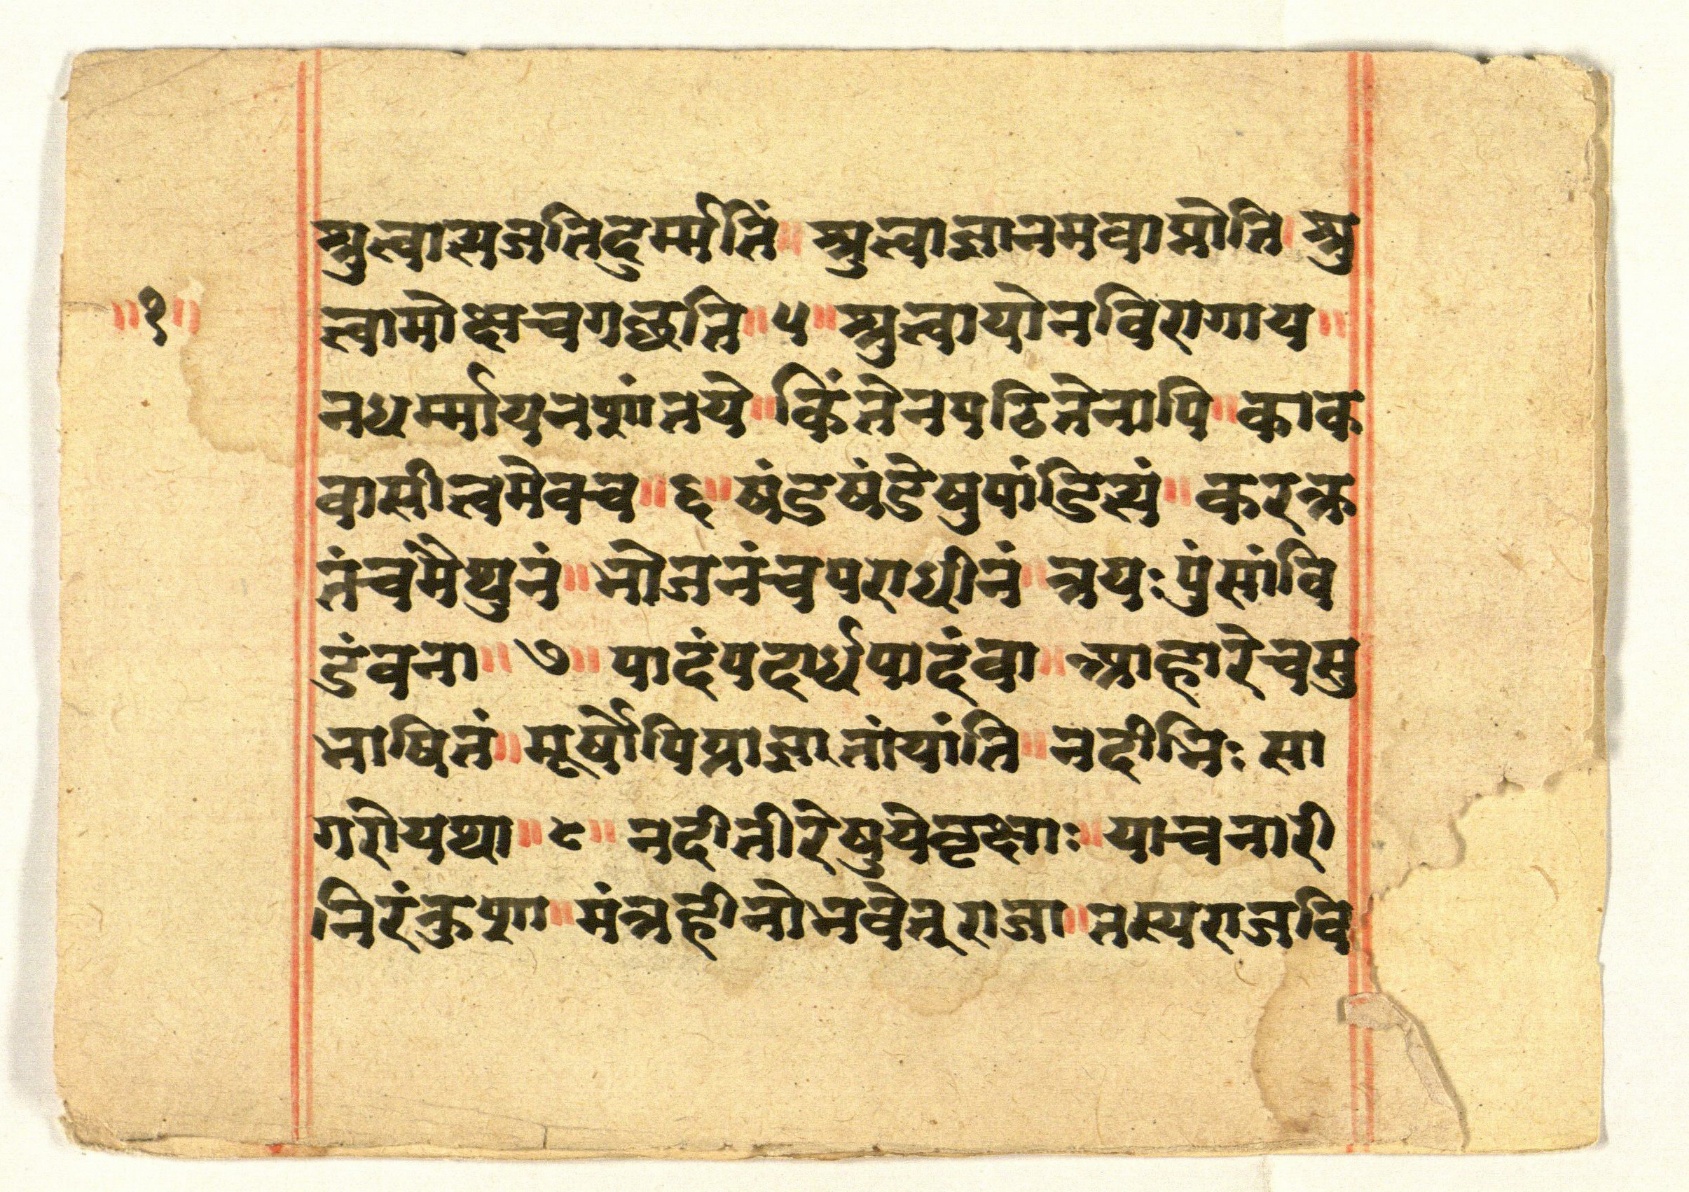 श्रुत्वात्यजतिदुर्म्मतिं॥ श्रुत्वाज्ञानमवाप्नोति॥ श्रु
॥१॥ त्वामोक्षचगच्छति॥५॥ श्रुत्वायोनविरागाय॥
नधर्म्मायनशांतये॥ किंतेनपठितेनापि॥ काक
वासीत्वमेवच॥६॥ षंडषंडेषुपांडित्यं॥ करक्र
तंचमैथुनं॥ भोजनंचपराधीनं॥ त्रयः पुंसांवि
डंवना॥७॥ पादंपदार्धपादंवा॥ आहारेचसु
भाषितं॥ मूर्षोपिप्राज्ञतांयांति॥ नदीभिः सा
गरोयथा॥८॥ नदीतीरेषुयेवृक्षाः॥ याचनारी
निरंकुशा॥ मंत्रहीनोभवेत्राजा॥ तस्यराजवि